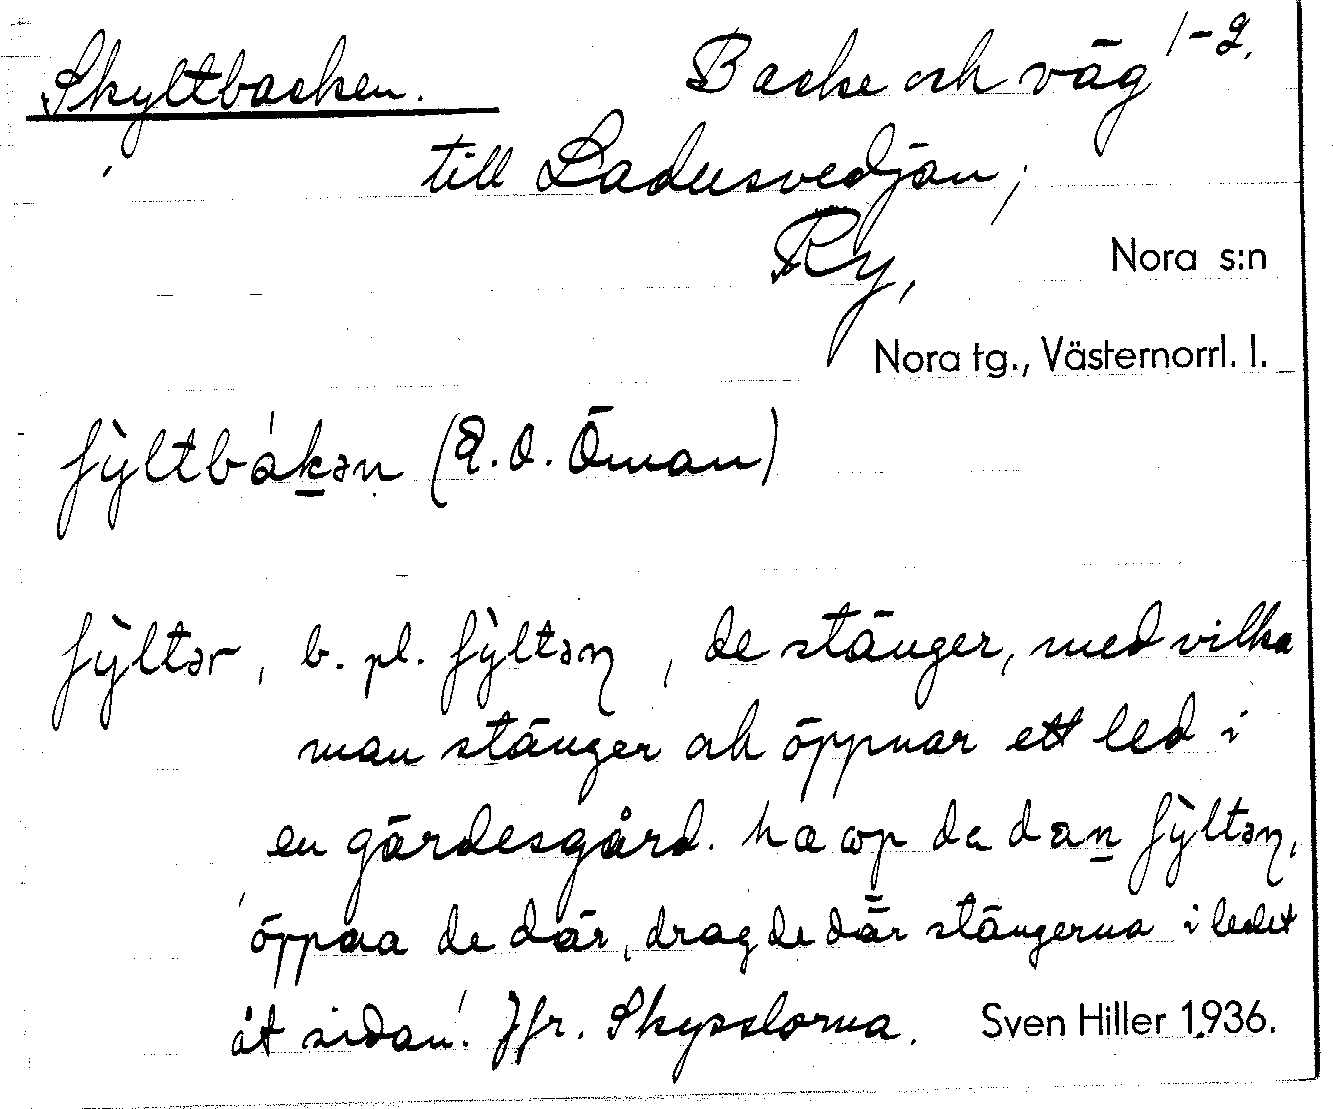 Skyltbacken. Backe och väg 1-2.
till Ladusvedjan;
Ry, Nora s:n
Nora tg., Västernorrl. l.
ʃỳltbákən (E.O. Öman)
ʃỳltər, b. pl. ʃỳltəɳ, de stänger, med vilka
man stänger och öppnar ett led i
en gärdesgård. ha op da dan ʃỳltəɳ,
öppna de där, drag de där stängerna i ledet
åt sidan! Jfr. Skysslorna. Sven Hiller 1936.